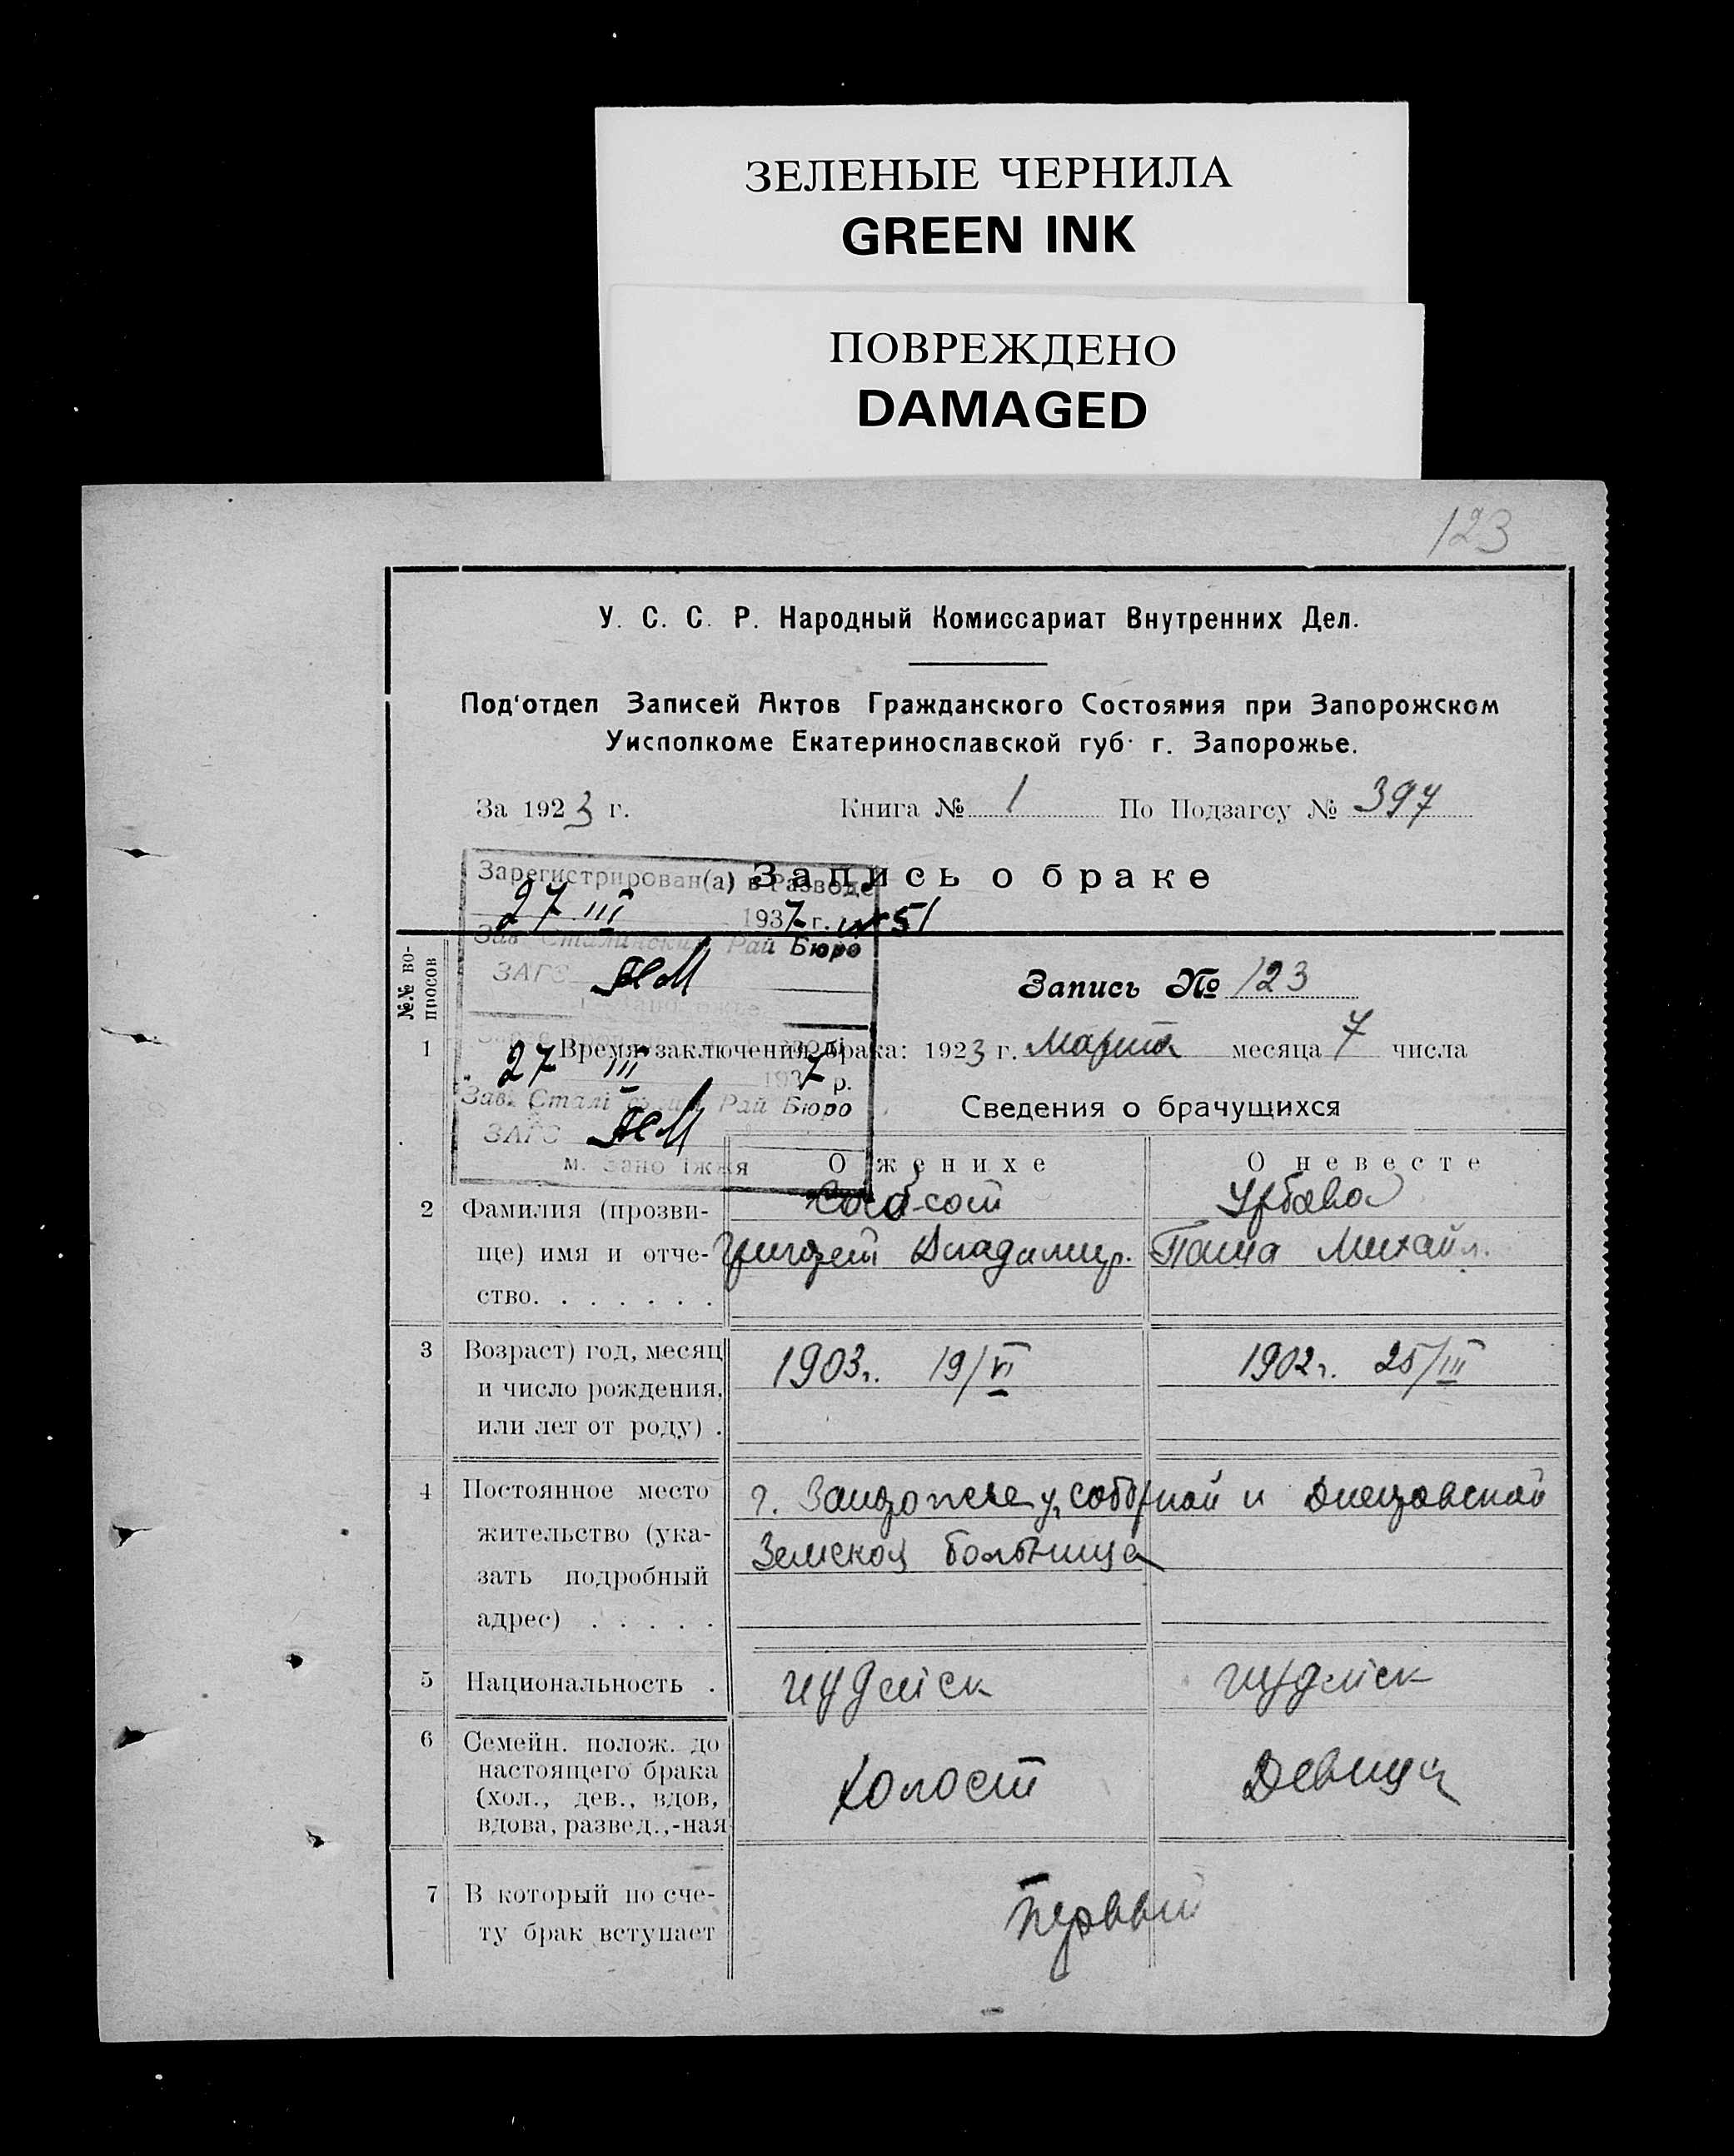 ЗЕЛЕНЫЕ ЧЕРНИЛА
GREEN INK
ПОВРЕЖДЕНО
DAMAGED
123
У. С. С. Р. Народный Комиссариат Внутренних Дел.
Под‘отдел Записей Актов Гражданского Состояния при Запорожском
Уисполкоме Екатеринославской губ. г. Запорожье.
За 1923 г. Книга № 1 По Подзагсу № 397
Запись о браке
Зарегистрирован(а) в Разводе
27 III 1937 г. № 51
Зав. Сталинским Рай Бюро
ЗАГС
№№ вопросов
Запись № 123
1 Время заключения брака: 1923 г. Марта месяца 7 числа
27 III 1937 р.
Зав. Рай Бюро
ЗАГС
м.
Сведения о брачущихся
О женихе О невесте
2 Фамилия (прозви-
ще) имя и отче- Владимир. Михайл.
ство. . . . . . .
3 Возраст) год, месяц 1903г. 19/VI 1902г. 25/III
и число рождения,
или лет от роду) .
4 Постоянное место г. Запорожье у. соборной и
жительство (ука- Земской больница
зать подробный
адрес) . . . . .
5 Национальность . иудейск иудейск
6 Семейн. полож. до
настоящего брака Холост Девица
(хол., дев., вдов,
вдова, развед.,-ная
7 В который по сче- первый
ту брак вступает